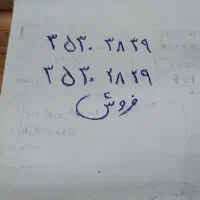 ۳۵۳۰ ۳۸۳۹
۳۵۳۰ ۲۸۲۹
فروش